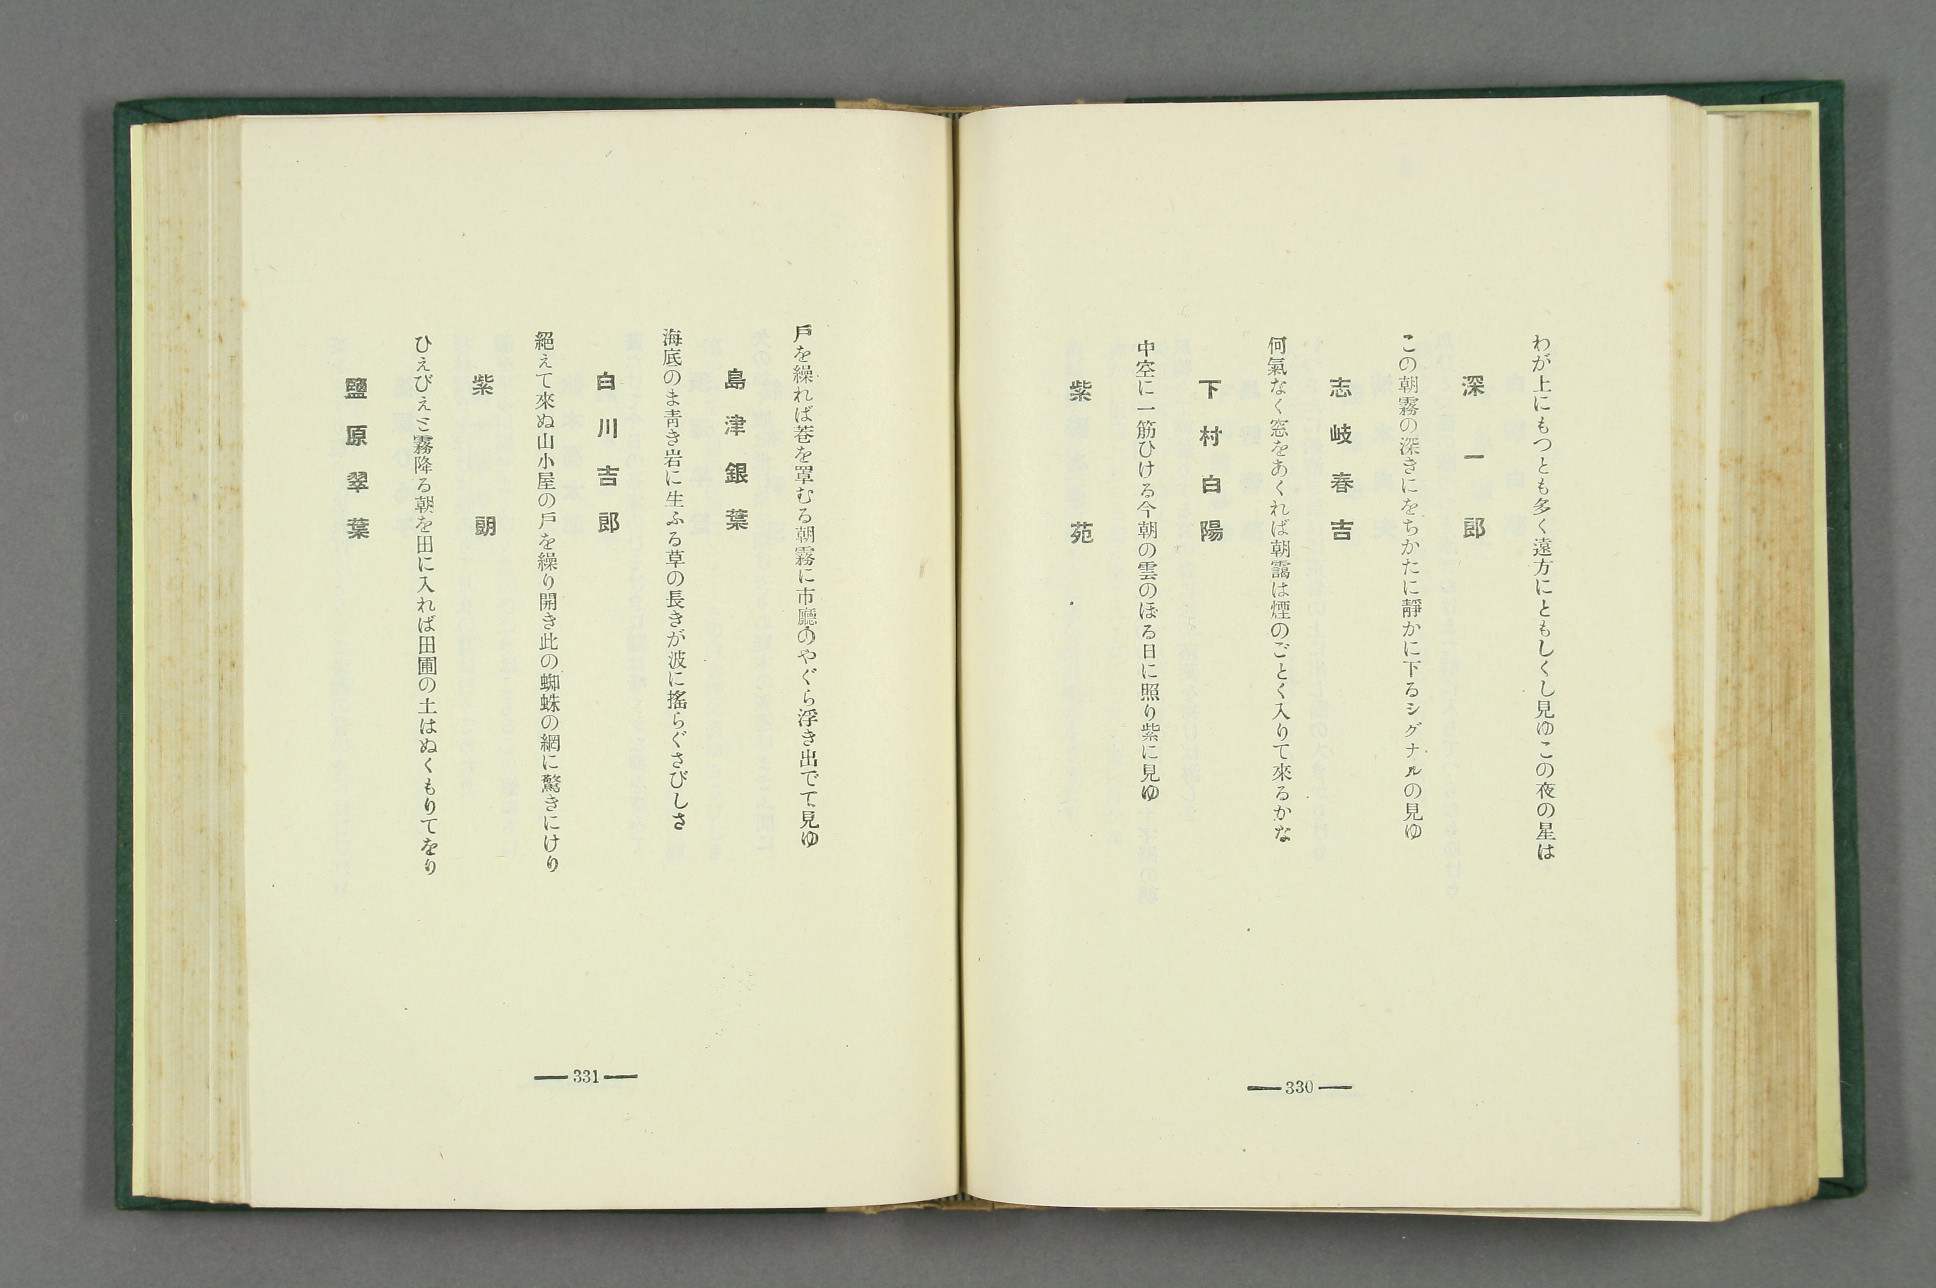 わが上にもつとも多く遠方にともしくし見ゆこの夜の星は
深一郎
この朝霧の深きにをちかたに靜かに下るシグナルの見ゆ
志岐春吉
何氣なく窓をあくれば朝靄は煙のごとく入りて來るかな
下村白陽
中空に一筋ひける今朝の雲のぼる日に照り紫に見ゆ
紫苑
330
戶を繰れば巷を罩むる朝霧に市廳のやぐら浮き出でて見ゆ
島津銀葉
海底のま靑き岩に生ふる草の長きが波に搖らぐさびしさ
白川吉郎
絕えて來ぬ山小屋の戶を繰り開き此の蜘蛛の網に驚きにけり
紫朗
ひえびえと霧降る朝を田に入れば田圃の土はぬくもりてをり
鹽原翠葉
331